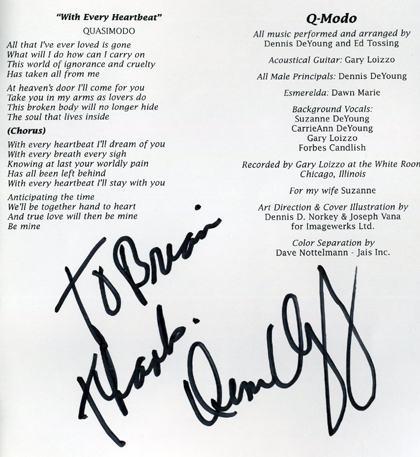 "With Every Heartbeat"
QUASIMODO
All that I've ever loved is gone
What will I do how can I carry on
This world of ignorance and cruelty
Has taken all from me
At heaven's door I'll come for you
Take you in my arms as lovers do
This broken body will no longer hide
The soul that lives inside
(Chorus)
With every heartbeat I'll dream of you
With every breath every sigh
Knowing at last your worldly pain
Has all been left behind
With every heartbeat I'll stay with you
Anticipating the time
We'll be together hand to heart
And true love will then be mine
Be mine
Q-Modo
All music performed and arranged by
Dennis DeYoung and Ed Tossing
Acoustical Guitar: Gary Loizzo
All Male Principals: Dennis DeYoung
Esmerelda: Dawn Marie
Background Vocals:
Suzanne DeYoung
CarrieAnn DeYoung
Gary Loizzo
Forbes Candlish
Recorded by Gary Loizzo at the White Room
Chicago, Illinois
For my wife Suzanne
Art Direction & Cover Illustration by
Dennis D. Norkey & Joseph Vana
for Imagewerks Ltd.
Color Separation by
Dave Nottelmann - Jais Inc.
To Brian
Thanks.